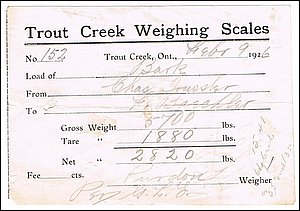 Trout Creek Weighing Scales
No. 152 Trout Creek, Ont., Febr 9 1926
Load of Bark
From Chas.
To
Gross Weight 4700 lbs.
Tare " 1880 lbs.
Net " 2820 lbs.
Fee cts. Purdon Weigher
Per